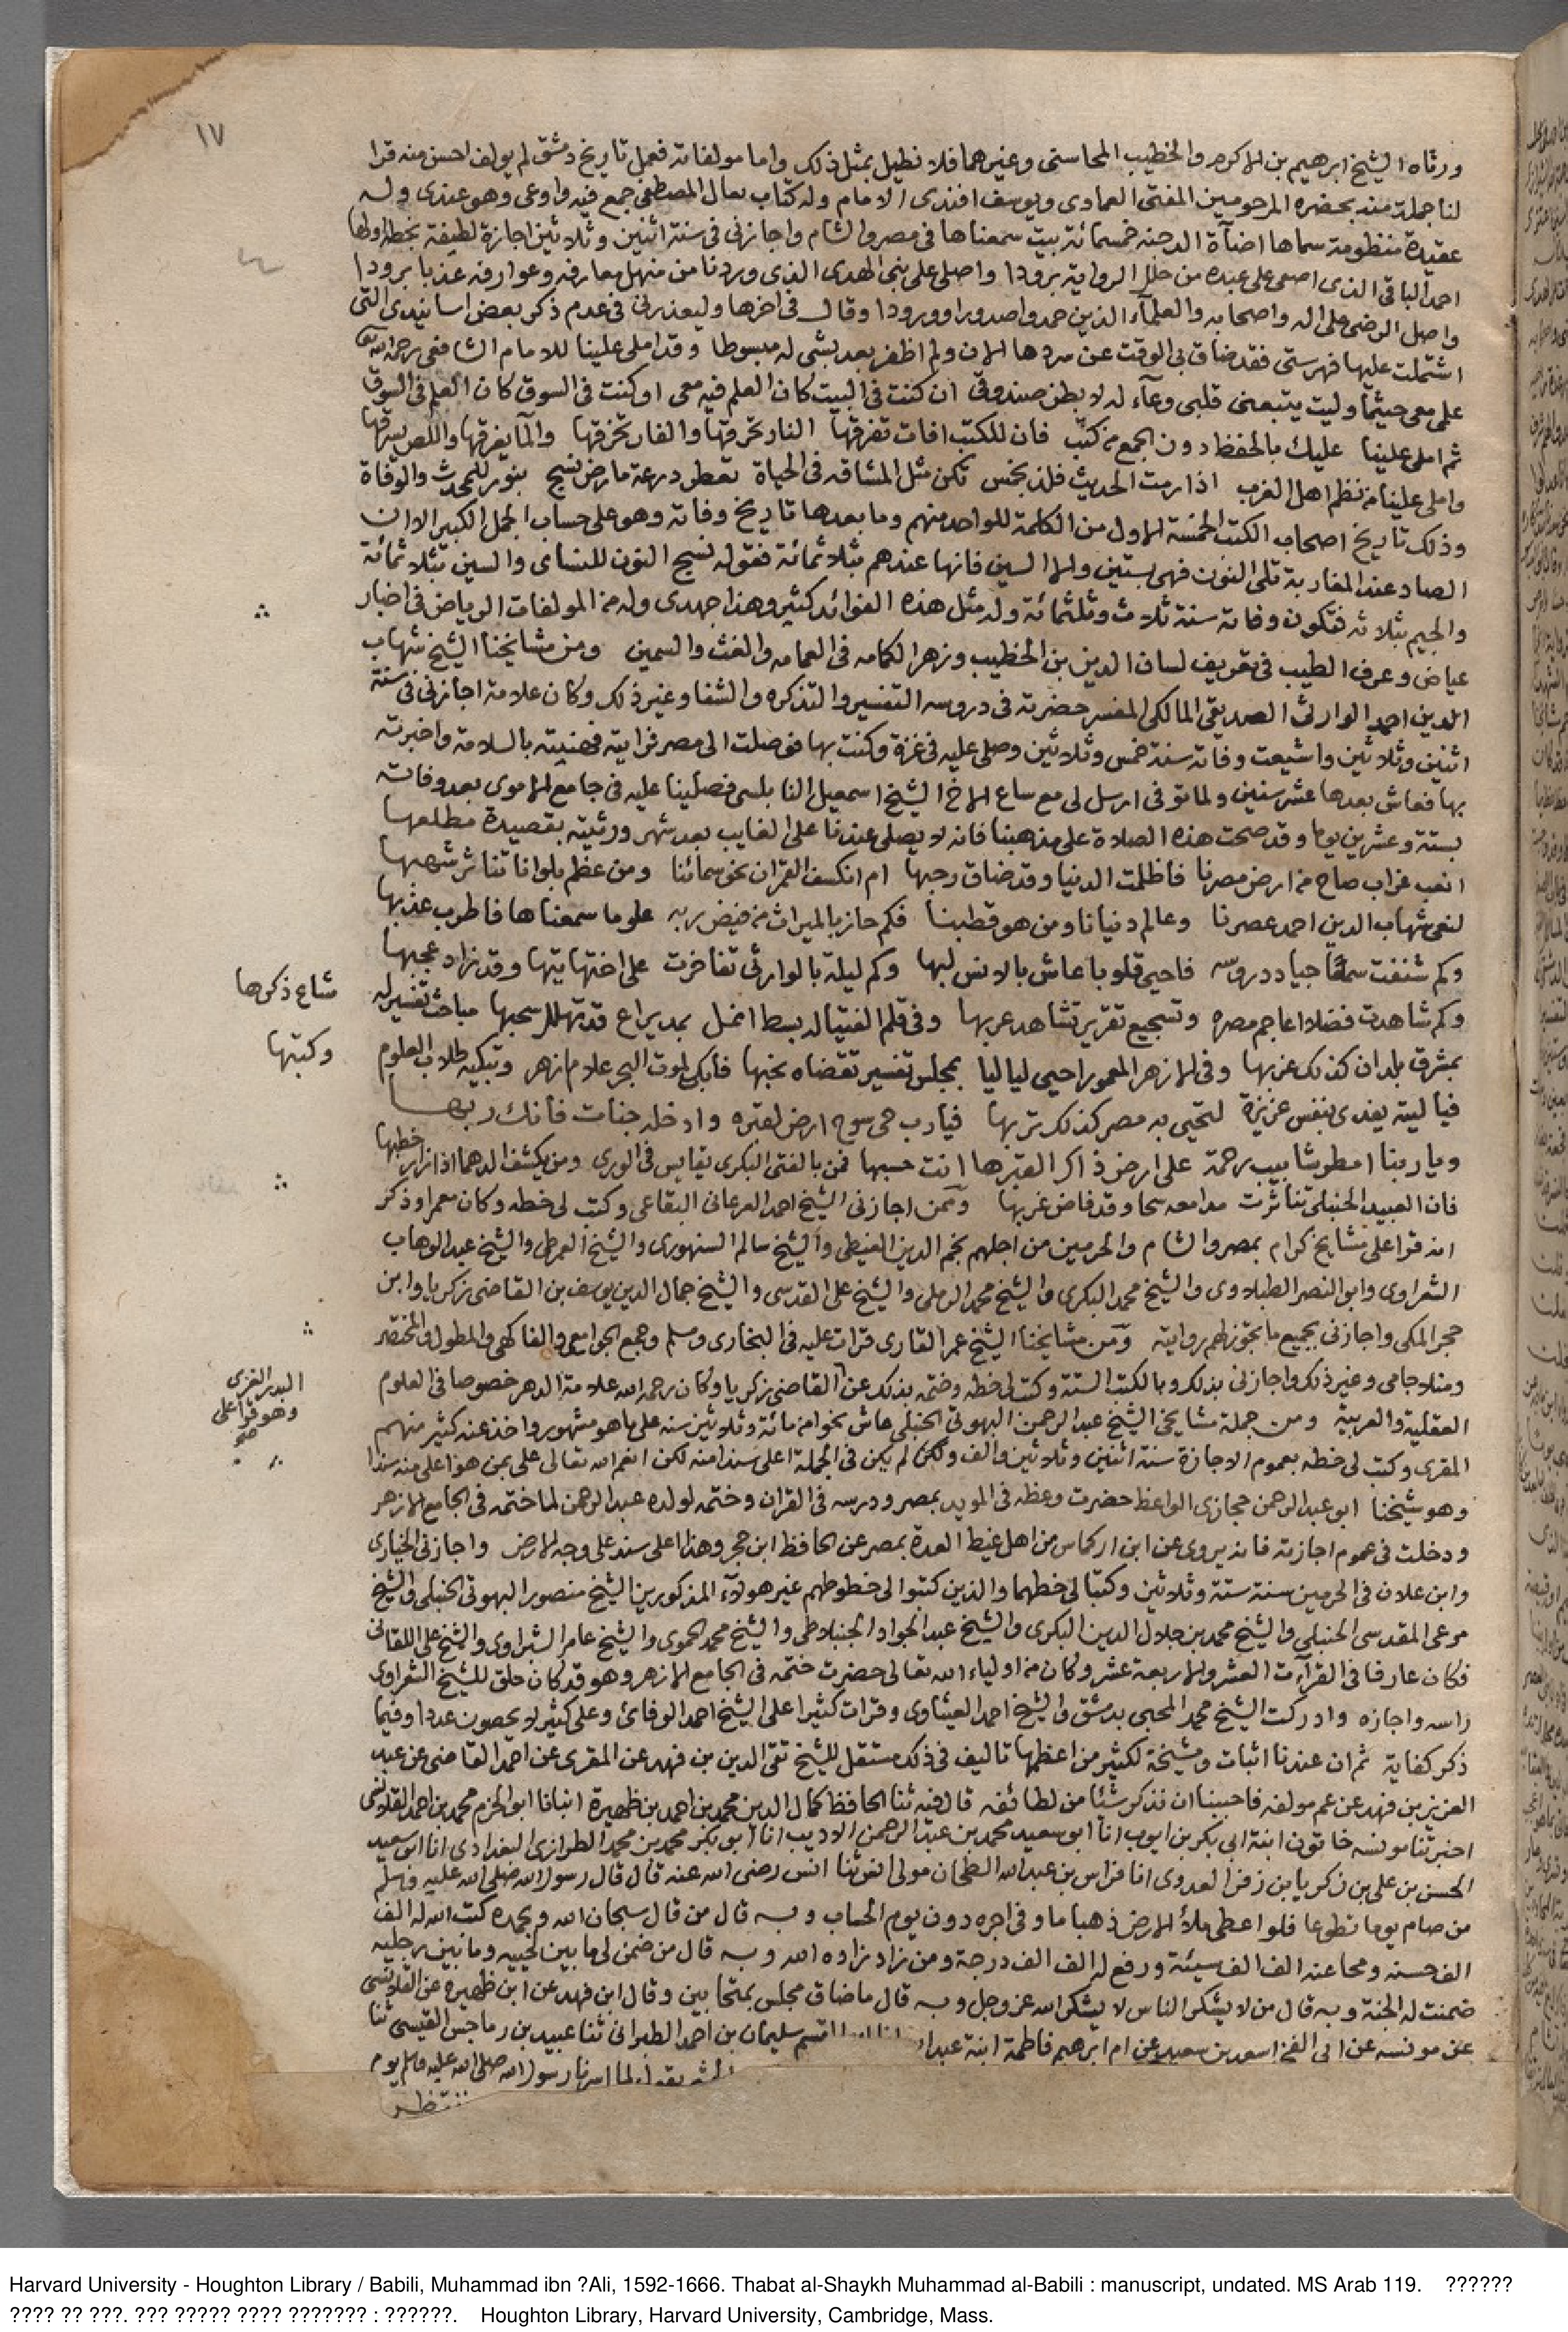 ١٧
ورثاه الشيخ ابرهيم بن الاكرم والخطيب المحاسنى وغيرهما فلا نطيل بمثل ذلك واما مولفاته فعمل تاريخ دمشق لم يولف احسن منه قرا
لنا جملة منه بحضره المرحومين المفتى العمادى ويوسف افندى الامام وله كتاب نعال المصطفى جمع فيه واوعى وهو عندى وله
عقيدة منظومة سماها اضآة الدجنه خمسمائة بيت سمعناها فى مصر والشام واجازنى فى سنة اثنين وثلاثين اجازة لطيفة بخطه اولها
احمد الباقى الذى اصفى على عبده من حلل الرواية برودا واصلى على نبى الهدى الذى وردنا من منهل معارفه وعوارفه عذبا برودا
واصل الرضى على اله واصحابه والعلمآء الذين حمدوا صدورا وورودا وقال فى اخرها وليعذرنى فى عدم ذكر بعض اسانيدى التى
اشتملت عليها فهرستى فقد ضاق بى الوقت عن سردها الان ولم اظفر بعد بشى له مبسوطا وقد املى علينا للامام الشافعى رحمه الله تعا
علمى معى حيثما وليت يتبعنى قلبى وعآء له لا بطن صندوق ان كنت فى البيت كان العلم فيه معى او كنت فى السوق كان العلم فى السوق
ثم املى علينا عليك بالحفظ دون الجمع من كتب فان للكتب افات تفرقها النار تحرقها والفار تخرقها والمآ يغرقها واللص يسرقها
واملى علينا من نظم اهل الغرب اذا رمت الحديث فلذ بخمس تكن مثل المشافه فى الحياة نعطر درعة مارض نسج بنور للمحدث والوفاة
وذلك تاريخ اصحاب الكتب الخمسة الاول من الكلمة للواحد منهم وما بعدها تاريخ وفاته وهو على حساب الجمل الكبير الا ان
الصاد عند المغاربة تلى النون فهى بستين والا السين فانها عندهم بثلاثمائة فقوله نسج النون للنساى والسين بثلاثمائة
والجيم بثلاثه فتكون وفاته سنة ثلاث وثلثمائة وله مثل هذه الفوائد كثير وهذا جهدى وله من المولفات الرياض فى اخبار
عياض وعرف الطيب فى تعريف لسان الدين بن الخطيب وزهر الكمامه فى العمامه والغث والسمين ومن مشايخنا الشيخ شهاب
الدين احمد الوارثى الصديقى المالكى المفسر حضرته فى دروسه التفسير والتذكره والشفا وغير ذلك وكان علامة اجازنى فى سنة
اثنين وثلاثين واشيعت وفاته سنة خمس وثلاثين وصلى عليه فى غزة وكنت بها فوصلت الى مصر فرايته فهنيته بالسلامة واخبرته
بها فعاش بعدها عشر سنين ولما توفى ارسل لى مع ساع الاخ الشيخ اسمعيل النابلسى فصلينا عليه فى جامع الاموى بعد وفاته
بستة وعشرين يوما وقد صحت هذه الصلاة على مذهبنا فانه لا يصلى عندنا على الغايب بعد شهر ورثيته بقصيدة مطلعها
انعب غراب صاح من ارض مصرنا فاظلمت الدنيا وقد ضاق رحبها ام انكسف القمران نحو سمائنا ومن عظم بلوانا تناثر شهبها
لنعى شهاب الدين احمد عصرنا وعالم دنيانا ومن هو قطبنا فكم حاز بالميراث من فيض ربه علوما سمعناها فاطرب عذبها
وكم شنفت سمعا جياد دروسه فاحيى قلوبا عاش بالانس لبها وكم ليلة بالوارثى تفاخرت على اختها تيها وقد زاد عجبها
وكم شاهدت فضلا اعاجم مصره وتسجيع تقرير تشاهد عربها وفى قلم الفتيا له بسط انمل بمد يراع قد تهلل سحبها مباحث تفسير له
شاع ذكرها
وكتبها
بمشرق بلدان كذلك غربها وفى الازهر المعمور احيى لياليا بمجلس تفسير تقضاه نحبها فابكى لموت البحر علام ازهر وتبكيه طلاب العلوم
فيا ليته يفدى بنفس عزيزة لتحيى به مصر كذلك تربها فيارب حى سوح ارض لقبره وادخله جنات فانك ربها
وياربنا امطر شابيب رحمة على ارض ذاك القبرها انت حسبها فمن بالفتى البكرى يقايس فى الورى ومن يكشف الدهما اذا زار خطبها
فان العبيد الحنبلى تناثرت مدامعه سحا وقد فاض غربها وممن اجازنى الشيخ احمد العرعانى البقاعى وكتب لى خطه وكان معمرا وذكر
انه قرا على مشايخ كرام بمصر والشام والحرمين من اجلهم نجم الدين الغيطى والشيخ سالم السنهورى والشيخ العمرطى والشيخ عبد الوهاب
الشعراوى وابو النصر الطبلاوى والشيخ محمد البكرى والشيخ محمد الرملى والشيخ على القدسى والشيخ جمال الدين يوسف بن القاضى زكريا وابن
حجر المكى واجازنى بجميع ما يجوز لهم روايته ومن مشايخنا الشيخ عمر القارى قرات عليه فى البخارى ومسلم وجمع الجوامع والفاكهى والمطول والمختصر
ومنلا جامى وغير ذلك واجازنى بذلك وبالكتب الستة وكتب لى خطه وختمه بذلك عن القاضى زكريا وكان رحمه الله علامة الدهر خصوصا فى العلوم
البدر الغزى
وهو قرا على
صح
العقلية والعربية ومن جملة مشايخى الشيخ عبد الرحمن البهوتى الحنبلى عاش نحوا من مائة وثلاثين سنة على ما هو مشهور واخذ عنه كثير منهم
المقرى وكتب لى خطه بعموم الاجازة سنة اثنين وثلاثين والف ولكن لم يكن فى الجملة اعلى سندا منه لكن انعم الله تعالى على بمن هو اعلى منه سندا
وهو شيخنا ابو عبد الرحمن حجازى الواعظ حضرت وعظه فى المويد بمصر ودرسه فى القران وختمه لولده عبد الرحمن لما ختمه فى الجامع الازهر
ودخلت فى عموم اجازته فانه يروى عن ابن اركماس من اهل غيط العدة بمصر عن الحافظ ابن حجر وهذا اعلى سند على وجه الارض واجازنى الخيارى
وابن علان فى الحرمين سنة ستة وثلاثين وكتبا لى خطهما والذين كتبوا لى خطوطهم غير هولآء المذكورين الشيخ منصور البهوتى الحنبلى والشيخ
مرعى المقدسى الحنبلى والشيخ محمد بن جلال الدين البكرى والشيخ عبد الجواد الجنبلاطى والشيخ محمد الحموى والشيخ عامر الشبراوى والشيخ على اللقانى
فكان عارفا فى القرآءت العشر والاربعة عشر وكان من اولياء الله تعالى حضرت ختمه فى الجامع الازهر وهو قد كان حلق للشيخ الشعراوى
راسه واجازه وادركت الشيخ محمد المحبى بدمشق والشيخ احمد العيثاوى وقرات كثيرا على الشيخ احمد الوفائى وعلى كثير لا يحصون عددا وفيما
ذكر كفاية ثم ان عندنا اثبات ومشيخة لكثير من اعظمها تاليف فى ذلك مستقل للشيخ تقى الدين بن فهد عن المقرى عن احمد القاضى عن عبد
العزيز بن فهد عن عم مولفه فاحببنا ان نذكر شئا من لطائفه قال فيه ثنا الحافظ كمال الدين محمد بن احمد بن ظهيرة انبانا ابو الحزم محمد بن احمد القلانسى
اخبرتنا مونسه خاتون ابنة ابى بكر بن ايوب انا ابو سعيد محمد بن عبد الرحمن الاديب انا ابو بكر محمد بن محمد الطرازى البغدادى انا ابو سعيد
الحسن بن على بن زكريا بن زفر العدوى انا خراش بن عبد الله الطحان مولى انس ثنا انس رضى الله عنه قال قال رسول الله صلى الله عليه وسلم
من صام يوما تطوعا فلو اعطى ملأ الارض ذهبا ما وفى اجره دون يوم الحساب وبه قال من قال سبحان الله وبحمده كتب الله له الف
الف حسنه ومحا عنه الف الف سيئة ورفع له الف الف درجة ومن زاد زاده الله وبه قال من ضمن لى ما بين لحييه وما بين رجليه
ضمنت له الجنة وبه قال من لا يشكر الناس لا يشكر الله عز وجل وبه قال ما ضاق مجلس بمتحابين وقال ابن فهد عن ابن ظهيره عن القلانسى
عن مونسه عن ابى الفخ اسعد بن سعيد عن ام ابرهيم فاطمة ابنة عبد القسم سليمان بن احمد الطبرانى ثنا عبيد بن رماحس القيسى ثنا
يقول لما اسرنا رسول الله صلى الله عليه وسلم يوم
ننتظر